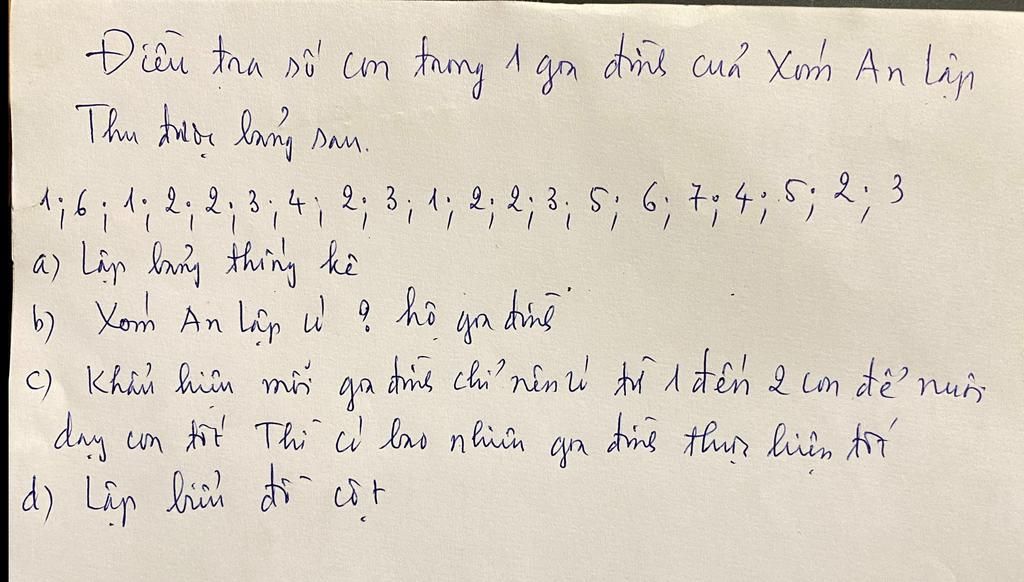 Điều tra số con trong 1 gia đình của Xóm An Lập
Thu được bảng sau.
1; 6; 1; 2; 2; 3; 4; 2; 3; 1; 2; 2; 3; 5; 6; 7; 4; 5; 2; 3
a) Lập bảng thống kê
b) Xóm An Lập có ? hộ gia đình
c) Khẩu hiệu mỗi gia đình chỉ nên có từ 1 đến 2 con để nuôi
dạy con tốt Thì có bao nhiêu gia đình thực hiện tốt
d) Lập biểu đồ cột